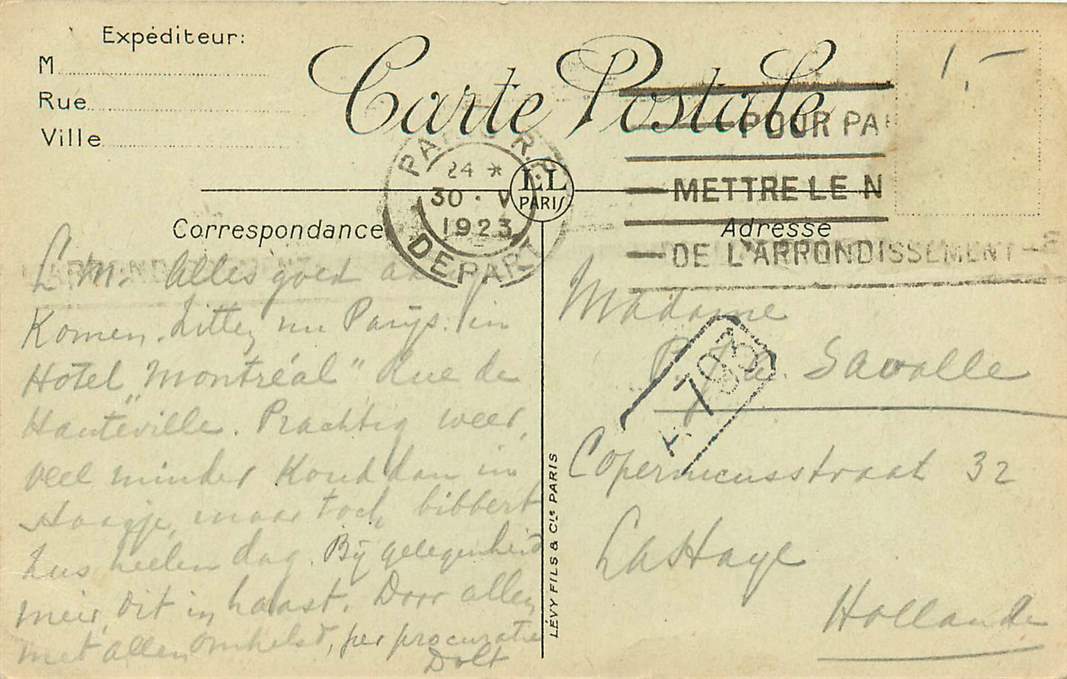 Expéditeur:
M
Rue
Ville
Carte Postale
1,-
PARIS R.P.
24 *
30 · V
1923
DEPART
LL
PARIS
POUR PA
METTRE LE N
DE L'ARRONDISSEMENT
Correspondance
Adresse
L. M. Alles goed
Komen. Zitten nu Parijs. in
Hotel „Montréal" Rue de
Hauteville. Prachtig weer,
veel minder koud dan in
Haagje, maar toch bibbert
Zus heelen dag. Bij gelegenheid
meer, dit in haast. Door allen
met allen omhelsd, per procuratie
Dolt
Madame
Savalle
Copernicusstraat 32
La Haye
Hollande
LÉVY FILS & CIE PARIS